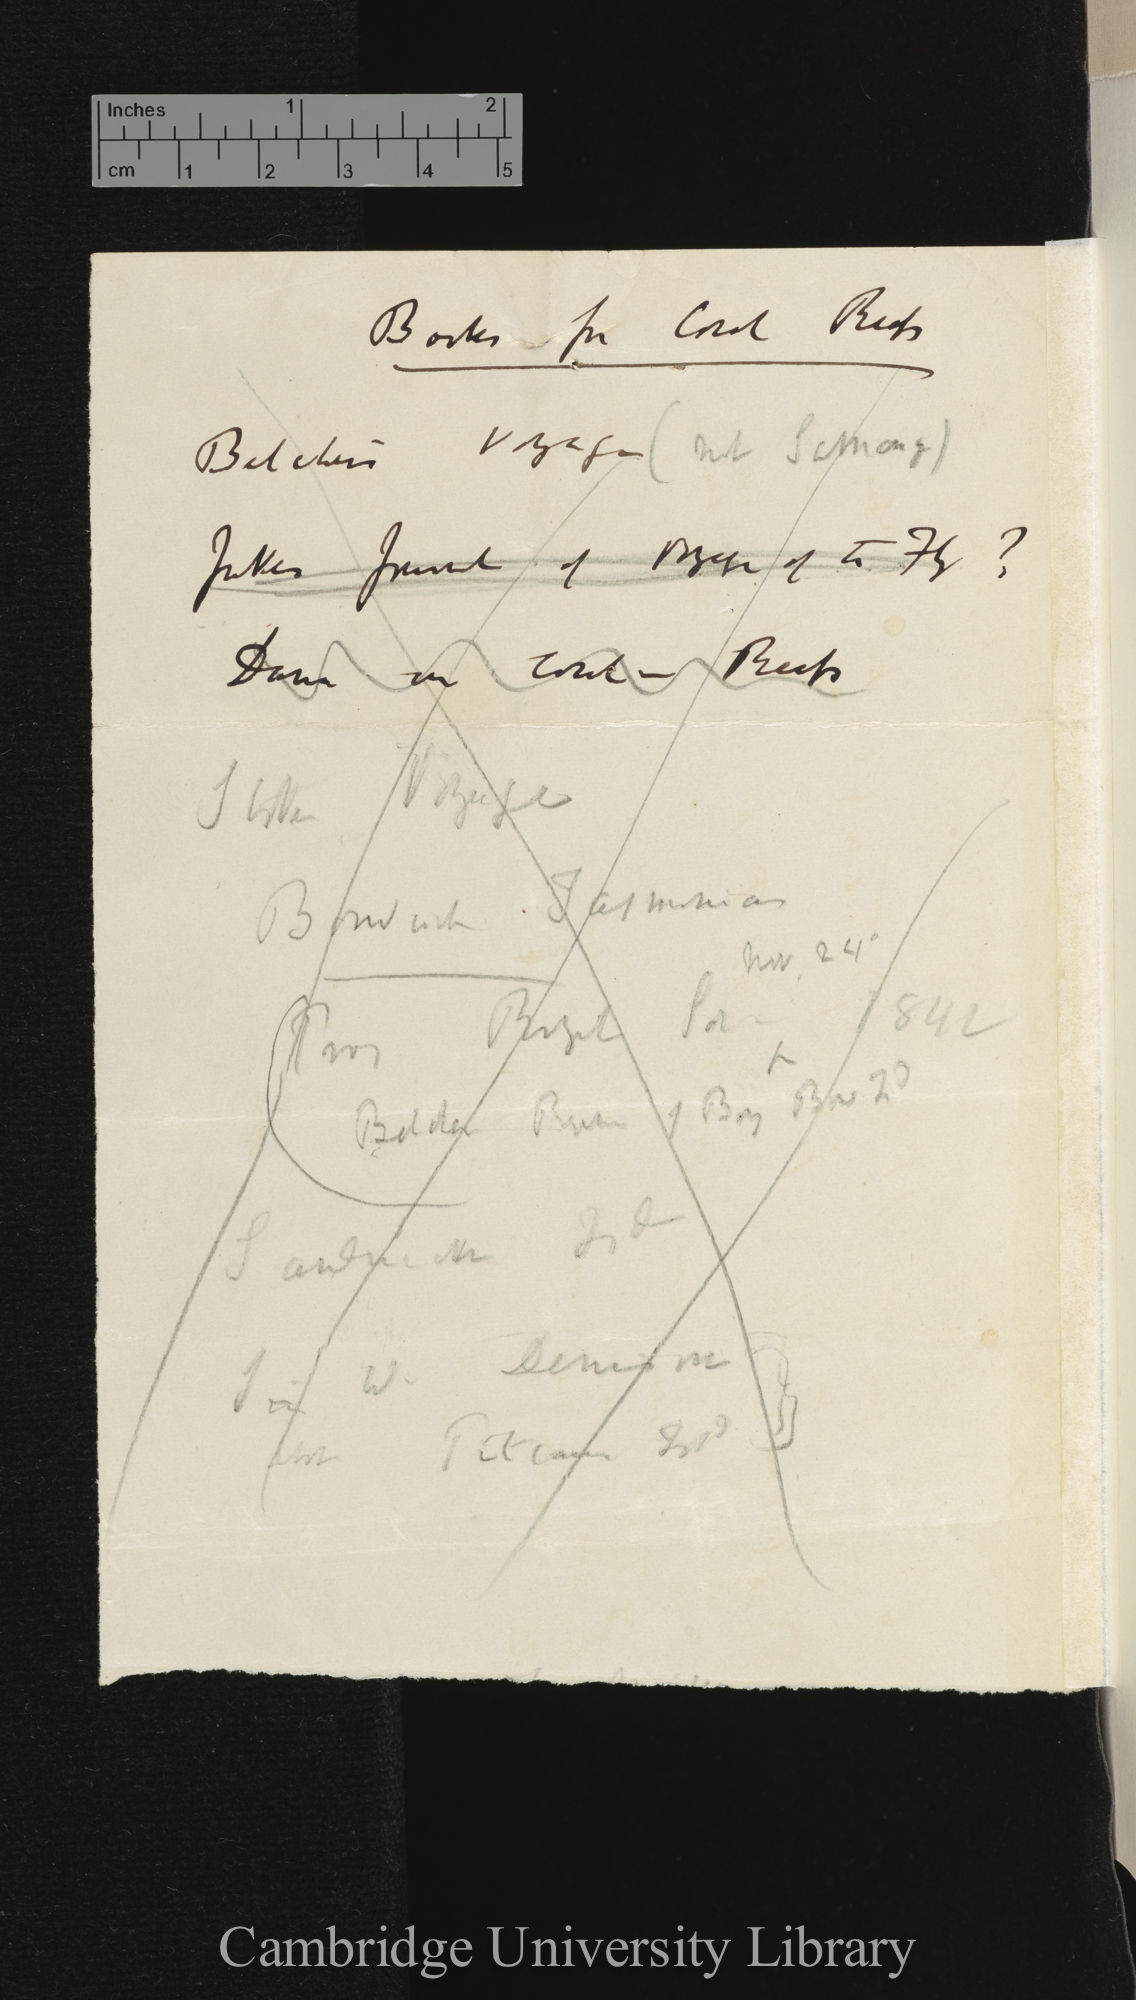 Inches 1 2
cm 1 2 3 4 5
Books for Coral Reefs
Belcher's Voyage (not Samarang)
Jukes Journal of Voyage of the Fly ?
Dana on Coral Reefs
Voyage
Bonwick Tasmanian
Nov. 24
Proc Royal Soc 1842
Belcher of Bow Isd
Sandwich Isd
Sir W. Denison
Pitcairn Isd
Cambridge University Library